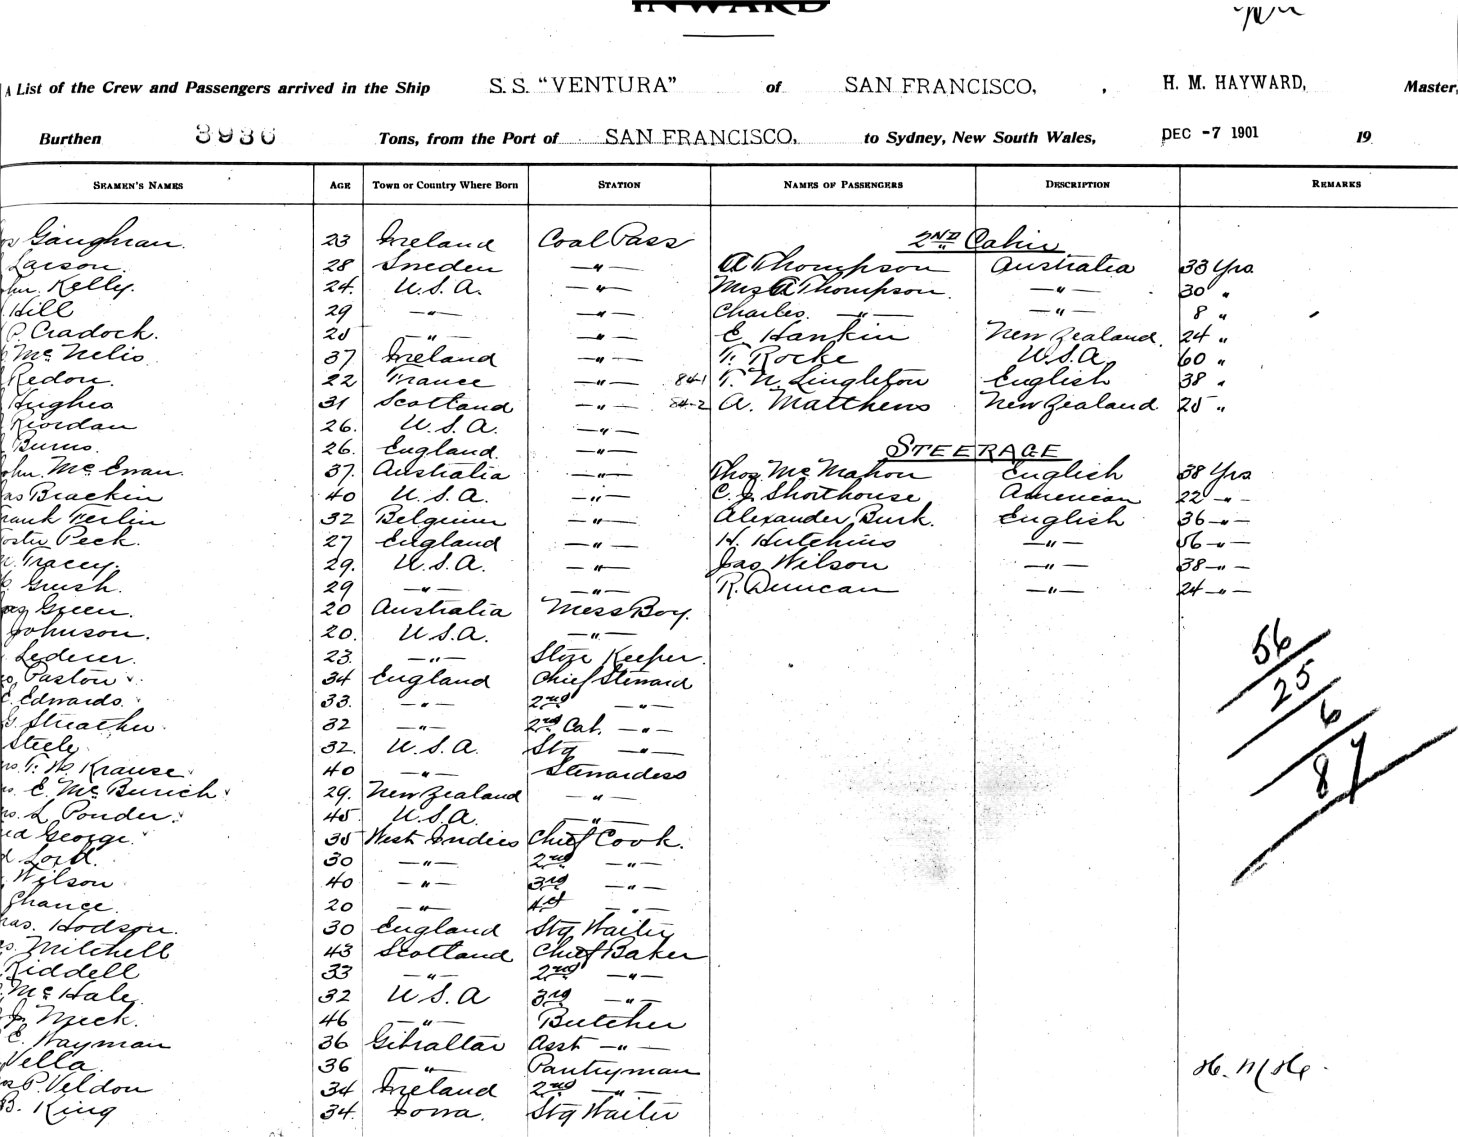 INWARD
A List of the Crew and Passengers arrived in the Ship S. S. "VENTURA" of SAN FRANCISCO, , H. M. HAYWARD, Master,
Burthen 3936 Tons, from the Port of SAN FRANCISCO, to Sydney, New South Wales, DEC -7 1901 19
SEAMEN'S NAMES AGE Town or Country Where Born STATION NAMES OF PASSENGERS DESCRIPTION REMARKS
Gaughran. 23 Ireland Coal Pass 2ND Cabin
Larson. 28 Sweden —"— A Thompson Australia 33 Yrs
Kelly. 24. U.S.A. —"— Mrs A Thompson. —"— 30 "
Hill 29 —"— —"— Charles. —"— —"— 8 "
P. Cradock. 25 —"— —"— E. Hankin New Zealand. 24 "
Mc Nelis. 37 Ireland —"— T. Rocke U.S.A. 60 "
Redon. 22 France —"— 84-1 T. N. Singleton English 38 "
Hughes 31 Scotland —"— 84-2 A. Matthews New Zealand 25 "
Riordan 26. U.S.A. —"—
Burns. 26. England. —"— STEERAGE
Mc Ewan. 37. Australia —"— Thos Mc Mahon English 38 Yrs
Brackin 40 U.S.A. —"— C. J. Shorthouse American 22 —"—
Frank Ferlin 32 Belgium —"— Alexander Burk. English 36 —"—
Peck. 27 England —"— H. Hutchins —"— 56 —"—
Tracey. 29. U.S.A. —"— Jas Wilson —"— 38 —"—
Grush. 29 —"— —"— R. Duncan —"— 24 —"—
Green. 20 Australia Mess Boy.
Johnson. 20. U.S.A. —"—
Lederer. 23. —"— Store Keeper.
Paston 34 England Chief Steward
Edwards. 33. —"— 2nd —"—
Streather. 32 —"— 2nd Cab. —"—
Steele 32. U.S.A. Stg —"—
Krause 40 —"— Stewardess
E. Mc Burich 29. New Zealand —"—
L Ponder. 45 U.S.A. —"—
George. 35 West Indies Chief Cook.
Lord. 30 —"— 2nd —"—
Wilson 40 —"— 3rd —"—
Chance 20 —"— 4th —"—
Hodson. 30 England Stg Waiter
Mitchell 43 Scotland Chief Baker
Riddell 33 —"— 2nd —"—
Mc Hale. 32 U.S.A 3rd —"—
J. Meek. 46 —"— Butcher
E. Wayman 36 Gibraltar Asst —"—
Vella. 36 —"— Pantryman
P. Veldon 34 Ireland 2nd —"—
B. King 34. Iowa. Stg Waiter
56
25
6
87